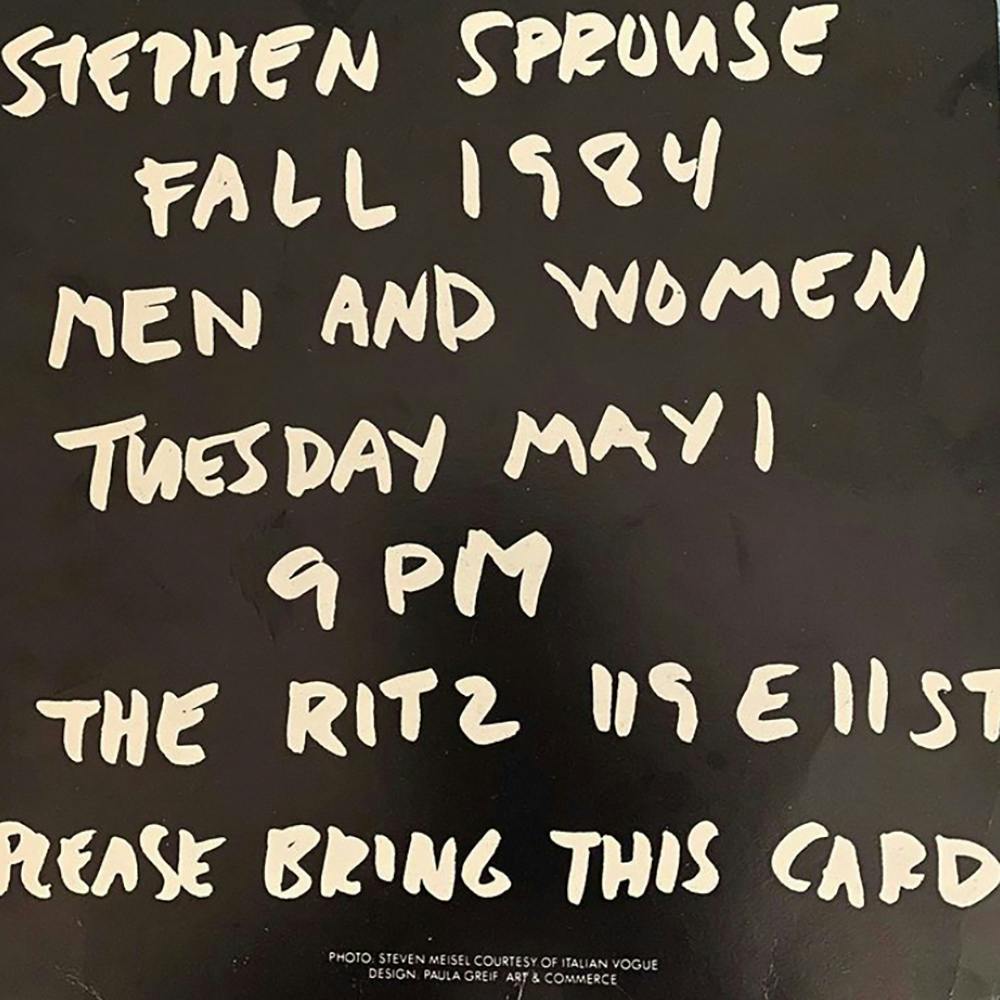 STEPHEN SPROUSE
FALL 1984
MEN AND WOMEN
TUESDAY MAY 1
9 PM
THE RITZ 119 E 11 ST
PLEASE BRING THIS CARD
PHOTO: STEVEN MEISEL COURTESY OF ITALIAN VOGUE
DESIGN: PAULA GREIF ART & COMMERCE